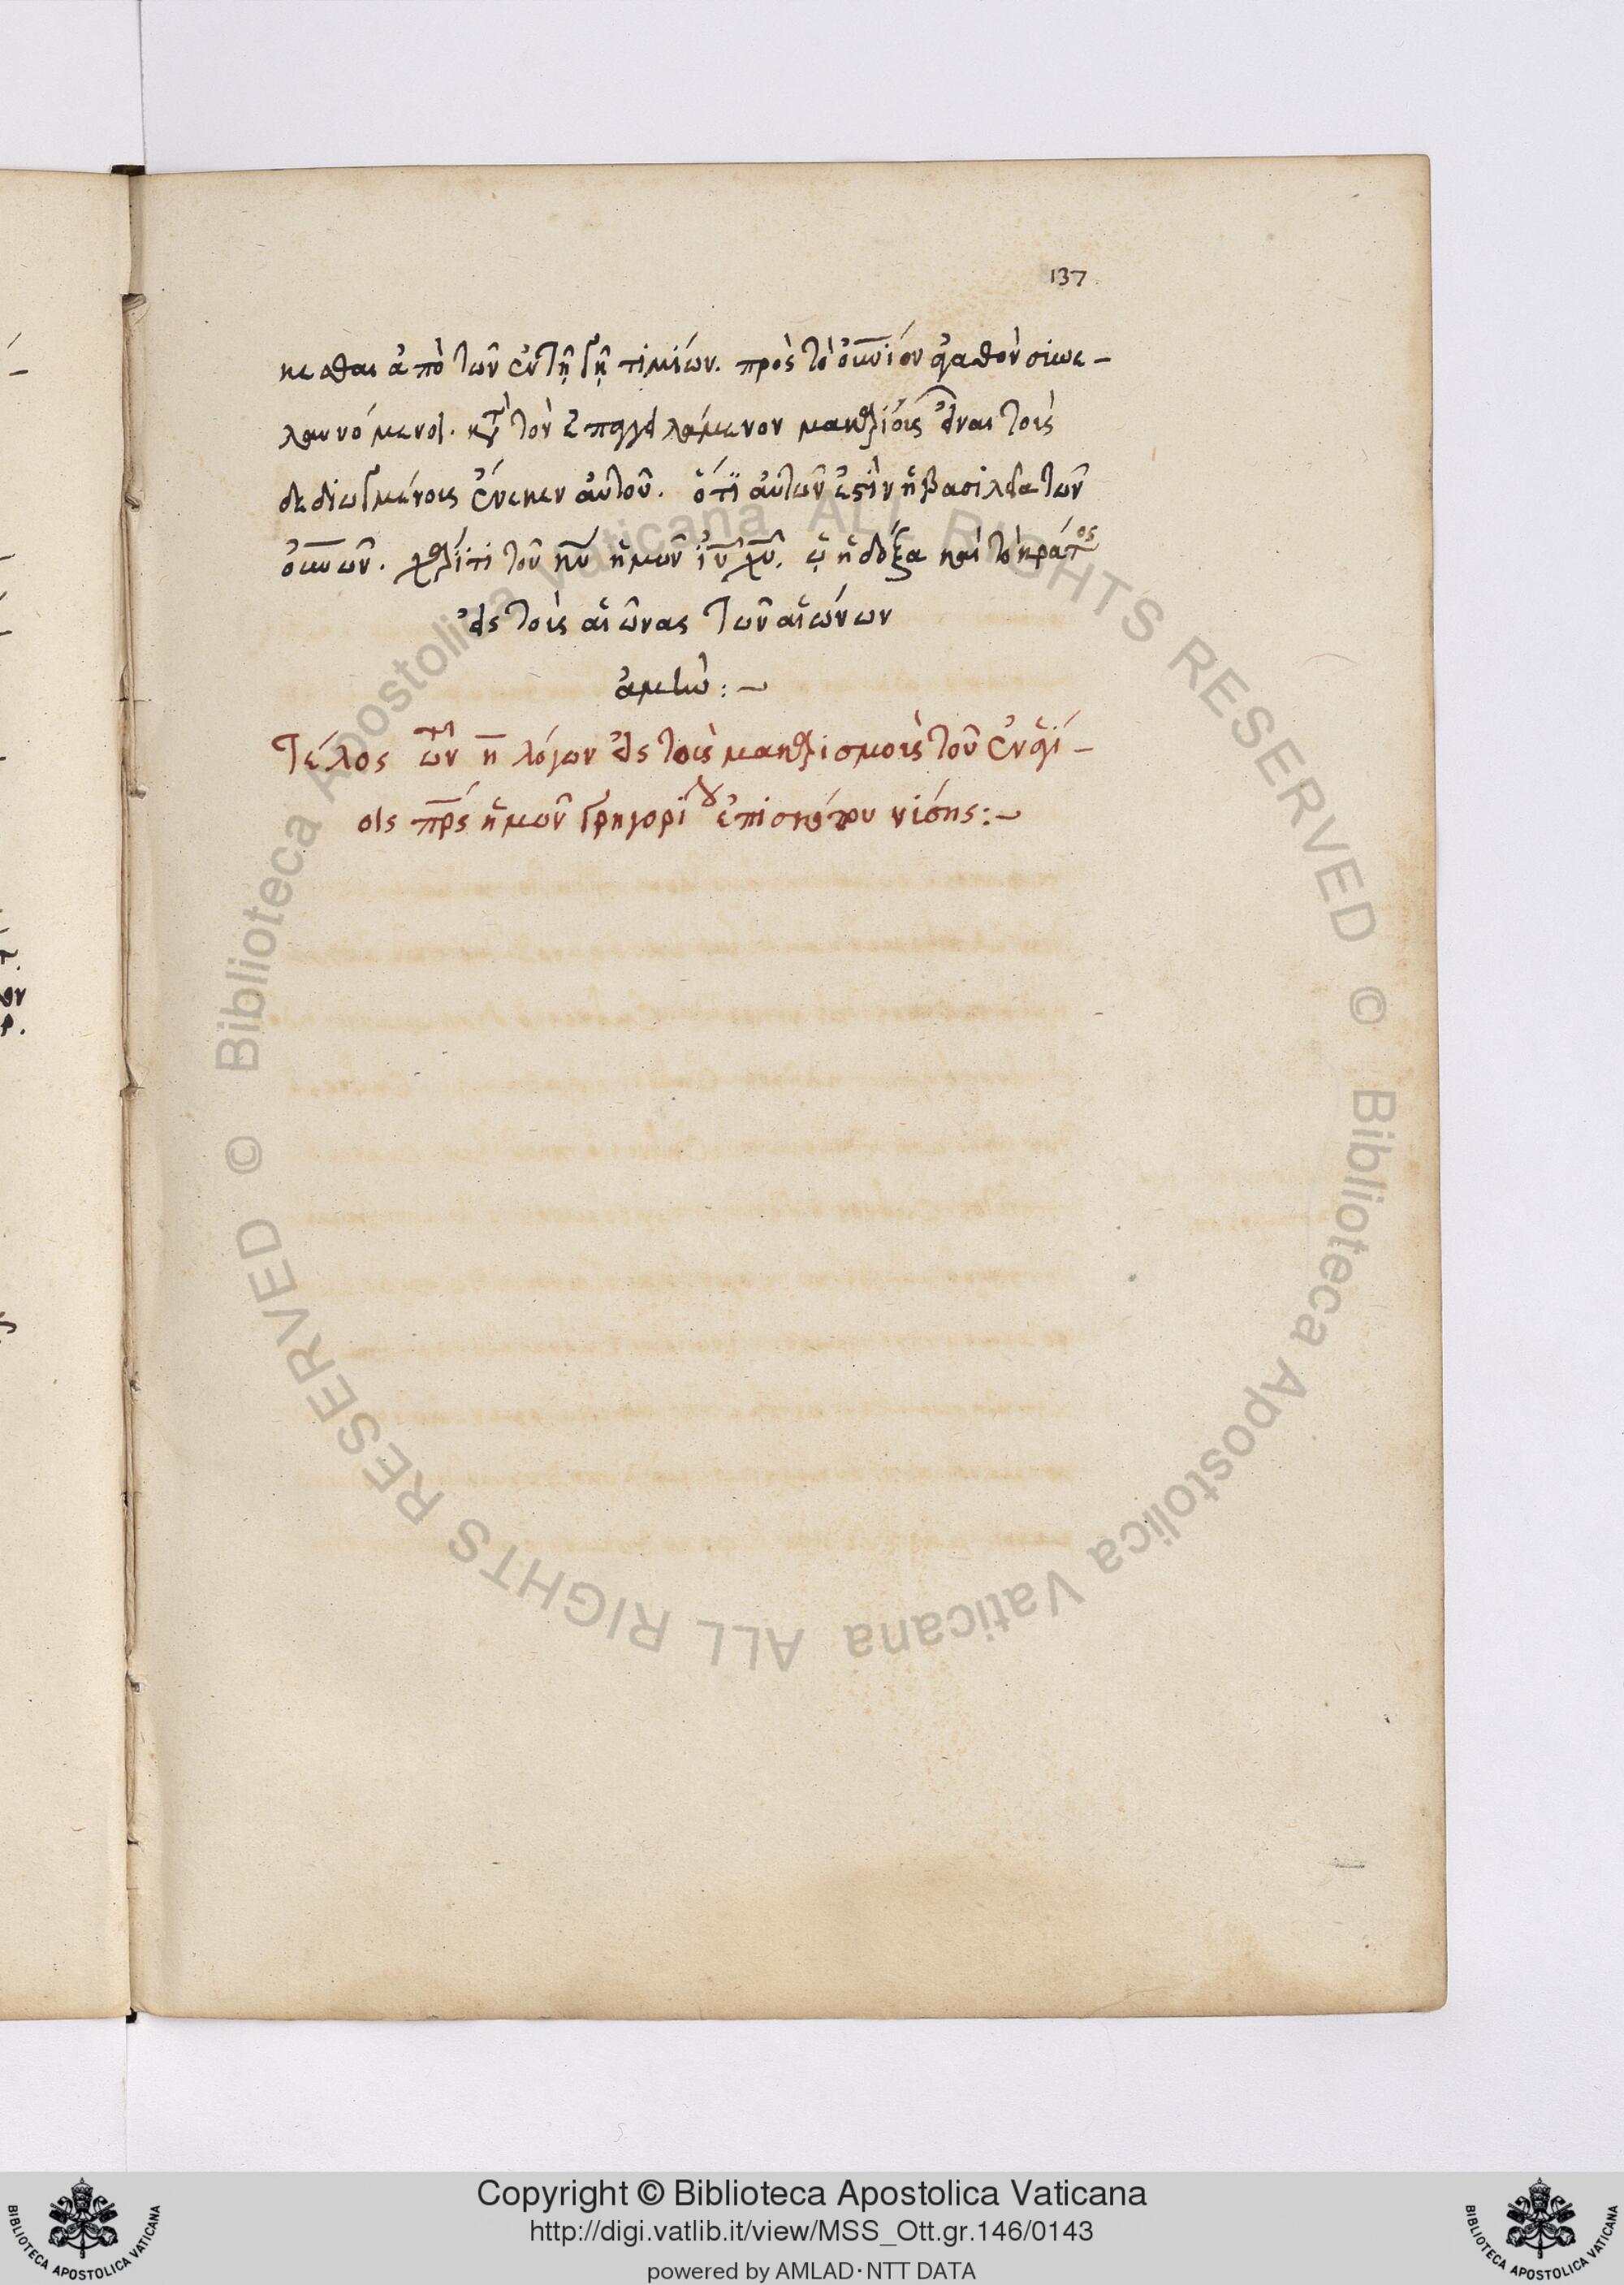 137
κεσθαι ἀπὸ τῶν ἐν τῇ γῇ τιμίων. πρὸς τὸ οὐνιὸν ἀγαθὸν σιωε-
λαυνόμενοι. κτ̀ τὸν ἐπαγγειλάμενον μακαρίους εἶναι τοὺς
δεδιωγμένους ἕνεκεν αὐτοῦ. ὅτι αὐτῶν ἐστὶν ἡ βασιλεία τῶν
οὐνων. χάριτι τοῦ κυ ἡμῶν ιυ χυ. ᾧ ἡ δόξα καὶ τὸ κράτος
εἰς τοὺς αἰῶνας τῶν αἰώνων
ἀμήν:~
Τέλος τῶν η λόγων εἰς τοὺς μακαρισμοὺς τοῦ ἐν ἁγί-
οις πρς ἡμῶν Γρηγορίου ἐπισκόπου νίσης:~
Biblioteca Apostolica Vaticana ALL RIGHTS RESERVED ©
Biblioteca Apostolica Vaticana ALL RIGHTS RESERVED ©
Copyright © Biblioteca Apostolica Vaticana
http://digi.vatlib.it/view/MSS_Ott.gr.146/0143
powered by AMLAD·NTT DATA
BIBLIOTECA APOSTOLICA VATICANA
BIBLIOTECA APOSTOLICA VATICANA